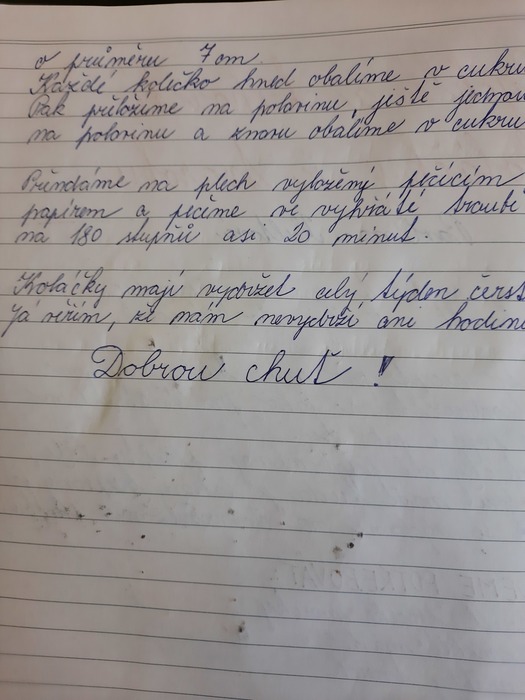 o průměru 7 cm.
Každé kolečko hned obalíme v cukru
Pak přeložíme na polovinu, jěště jednou
na polovinu a znovu obalíme v cukru
Přindáme na plech vyložený pečícím
papírem a pečíme ve vyhřáté troubě
na 180 stupňů asi 20 minut.
Koláčky mají vydržet celý týden čerst
Já věřím, že nám nevydrží ani hodinu
Dobrou chuť!